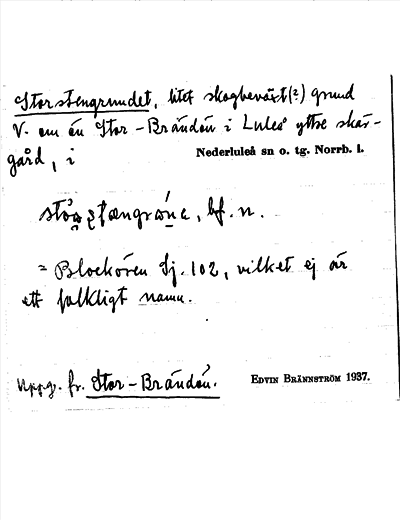 Storstengrundet, litet skogbeväxt(?) grund
V. om ön Stor-Brändön i Luleå yttre skär-
gård, i Nederluleå sn o. tg. Norrb. l.
bf. n.
= Blockören Sj. 102, vilket ej är
ett folkligt namn.
Uppg. fr. Stor-Brändön. EDVIN BRÄNNSTRÖM 1937.